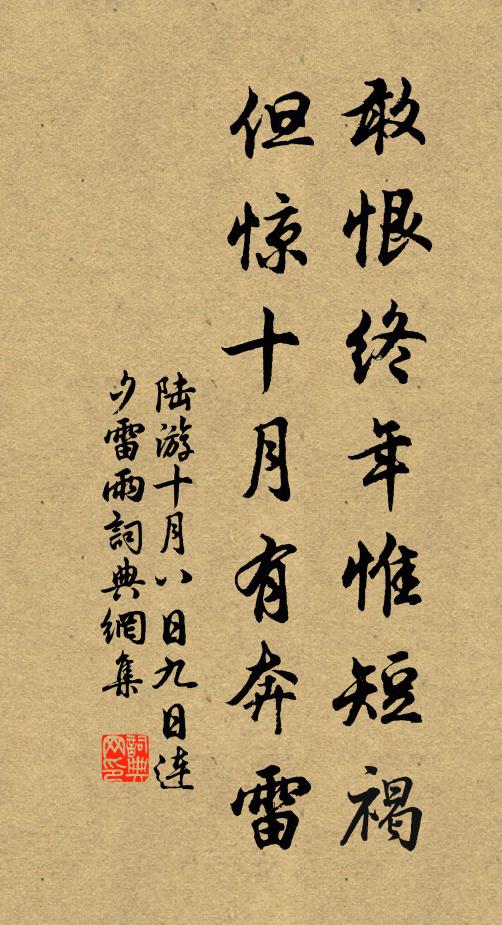 敢恨终年惟短褐
但惊十月有奔雷
陆游十月八日九日连
夕雷雨詞典網集
詞典
网印